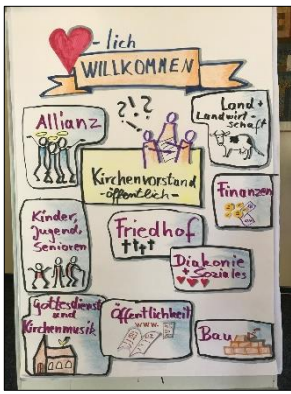 -lich
WILLKOMMEN
Allianz
?!?
Land +
Landwirt-
schaft
Kirchenvorstand
-öffentlich-
Finanzen
Kinder,
Jugend,
Senioren
Friedhof
Diakonie
+ Soziales
Gottesdienst
und
Kirchenmusik
Öffentlichkeit
www.
Bau